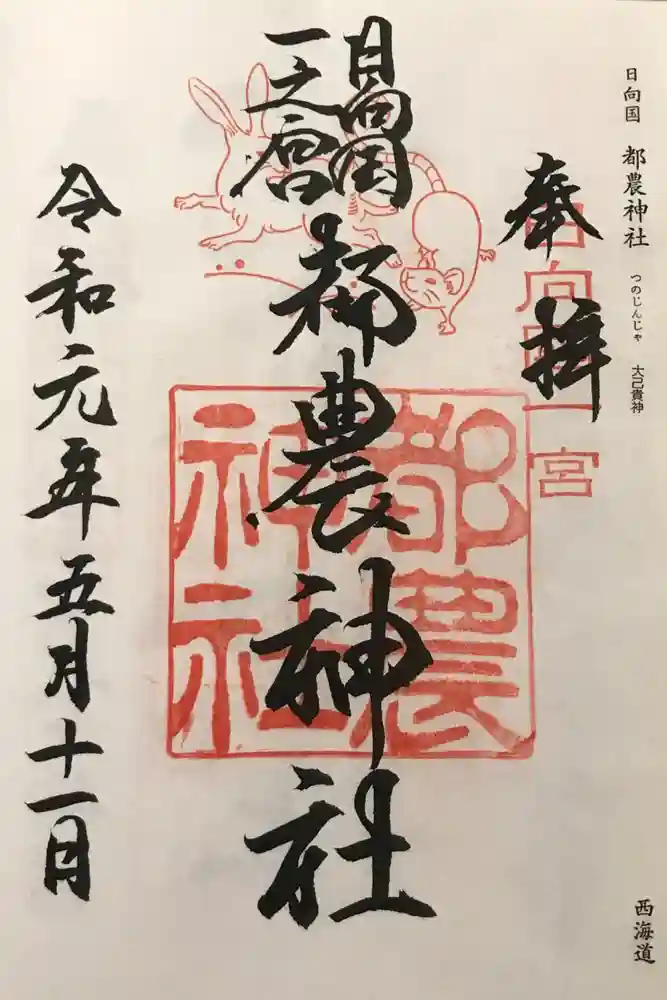 日向国 都農神社 つのじんじゃ 大己貴神
西海道
奉拝
日向国一宮
日向国
一之宮
都農神社
都農
神社
令和元年五月十一日